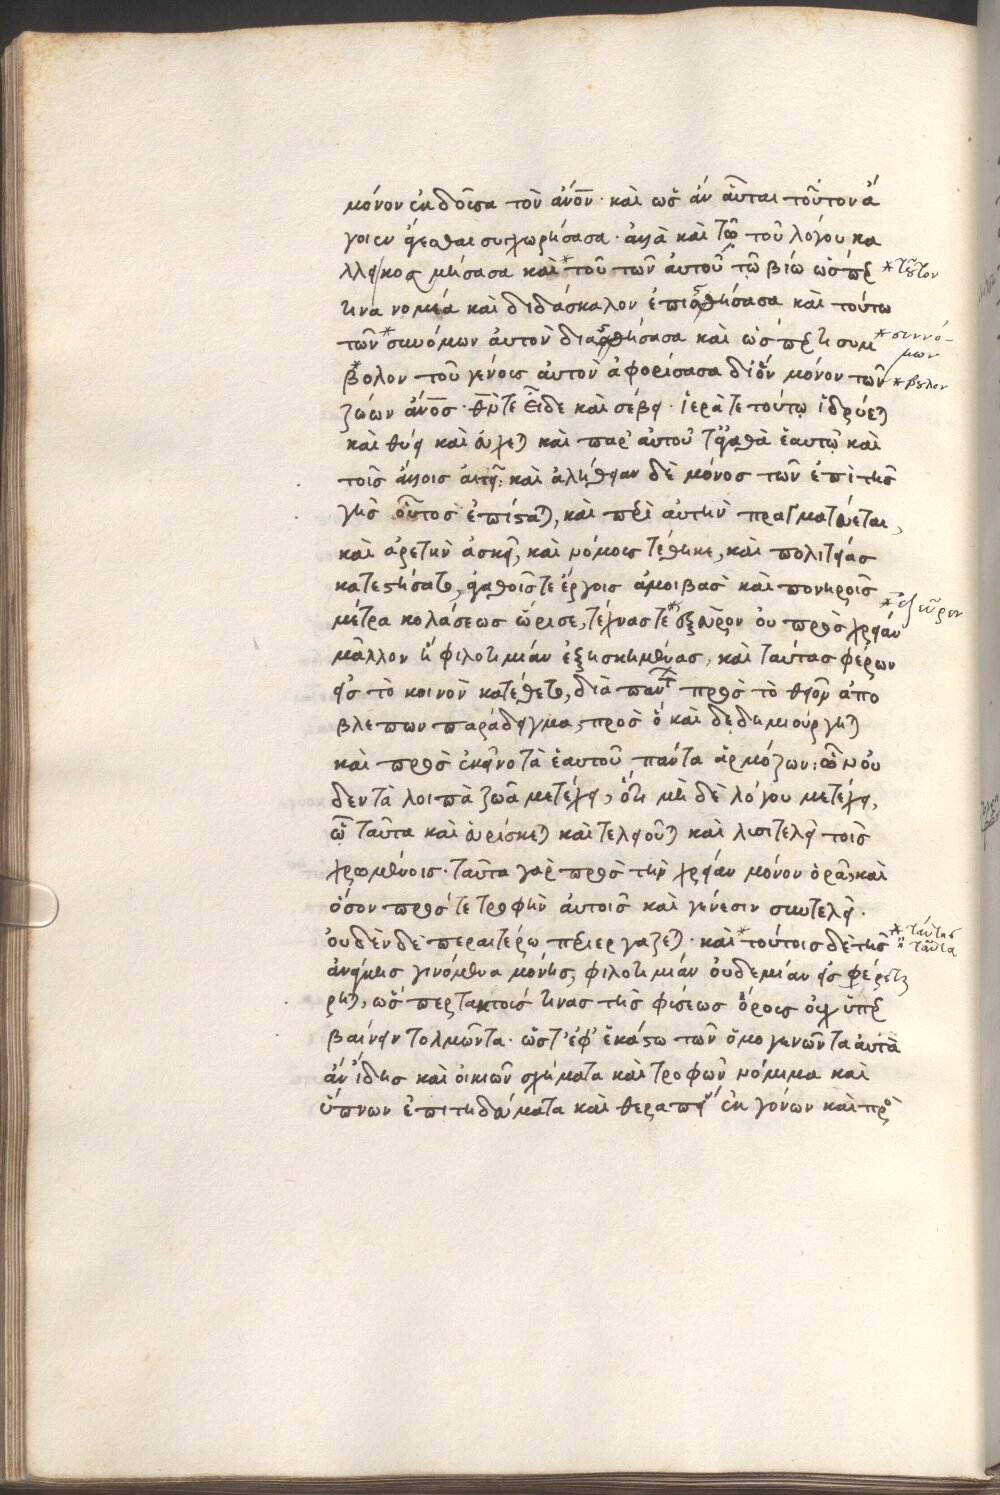 μόνον ἐνδοῦσα τὸν ἀνον· καὶ ὡς ἂν αὗται τοῦτον ἄ
γοιεν ἄγεσθαι συγχωρήσασα· ἀλλὰ καὶ τῶ τοῦ λόγου κα
λλει κοσμήσασα καὶ *τοῦ τῶν αὐτοῦ τῶ βίω ὥσπερ
τινα νομέα καὶ διδάσκαλον ἐπιστήσασα καὶ τούτω
τῶν *συνόμων αὐτὸν διαστήσασα καὶ ὥσπερ τι συμ
*βολον τοῦ γένους αὐτὸν ἀφορίσασα δι' ὃν μόνον τῶν
ζώων ἀνος· θντε εἶδε καὶ σέβει· ἱερά τε τούτῳ ἱδρύεται
καὶ θύει καὶ εὔχεται καὶ παρ' αὐτοῦ τἀγαθὰ ἑαυτῷ καὶ
τοῖς ἄλλοις αἰτεῖ: καὶ ἀλήθειαν δὲ μόνος τῶν ἐπὶ τῆς
γῆς οὗτος ἐπίσταται, καὶ περὶ αὐτὴν πραγματεύεται,
καὶ ἀρετὴν ἀσκεῖ, καὶ νόμους τέθηκε, καὶ πολιτείας
κατεστήσατο, ἀγαθοῖς τε ἔργοις ἀμοιβὰς καὶ πονηροῖς
μέτρα κολάσεως ὥρισε, τέχνας τε *ἐξεῦρον οὐ πρὸς χρείαν
μᾶλλον ἢ φιλοτιμίαν ἐξησκημένας, καὶ ταύτας φέρων
εἰς τὸ κοινὸν κατέθετο, διὰ παντ πρὸς τὸ θεῖον ἀπο
βλεπων παράδειγμα, πρὸς ὃ καὶ δεδημιούργηται
καὶ πρὸς ἐκεῖνο τὰ ἑαυτοῦ πάντα ἁρμόζων: ὧν οὐ
δεν τὰ λοιπὰ ζῶα μετέχει, ὅτι μὴ δὲ λόγου μετέχει,
ᾧ ταῦτα καὶ εὑρίσκεται καὶ τελειοῦται καὶ λυσιτελεῖ τοῖς
χρωμένοις· ταῦτα γὰρ πρὸς τὴν χρείαν μόνον ὁρᾶ, καὶ
ὅσον πρός τε τροφὴν αὐτοῖς καὶ γένεσιν συντελεῖ·
οὐδὲν δὲ περαιτέρω περιεργάζεται· καὶ *τούτοις δὲ τῆς
ἀνάγκης γινόμενα μόνης, φιλοτιμίαν οὐδεμίαν εἰς φέρεται
ρηται, ὥσπερ τακτοίς τινας τῆς φύσεως ὅρους οὐχ ὑπερ
βαίνειν τολμῶντα· ὥστ' ἐφ' ἑκάστω τῶν ὁμογενῶν τὰ αὐτὰ
ἂν ἴδῃς καὶ οἰκιῶν σχήματα καὶ τροφῶν νόμιμα καὶ
ὕπνων ἐπιτηδεύματα καὶ θεραπεί ἐκγόνων καὶ πρὸ
* τοῦτον
* συννό-
μων
* βολον
* ἐξεῦρεν
* ταύτης
" ταῦτα